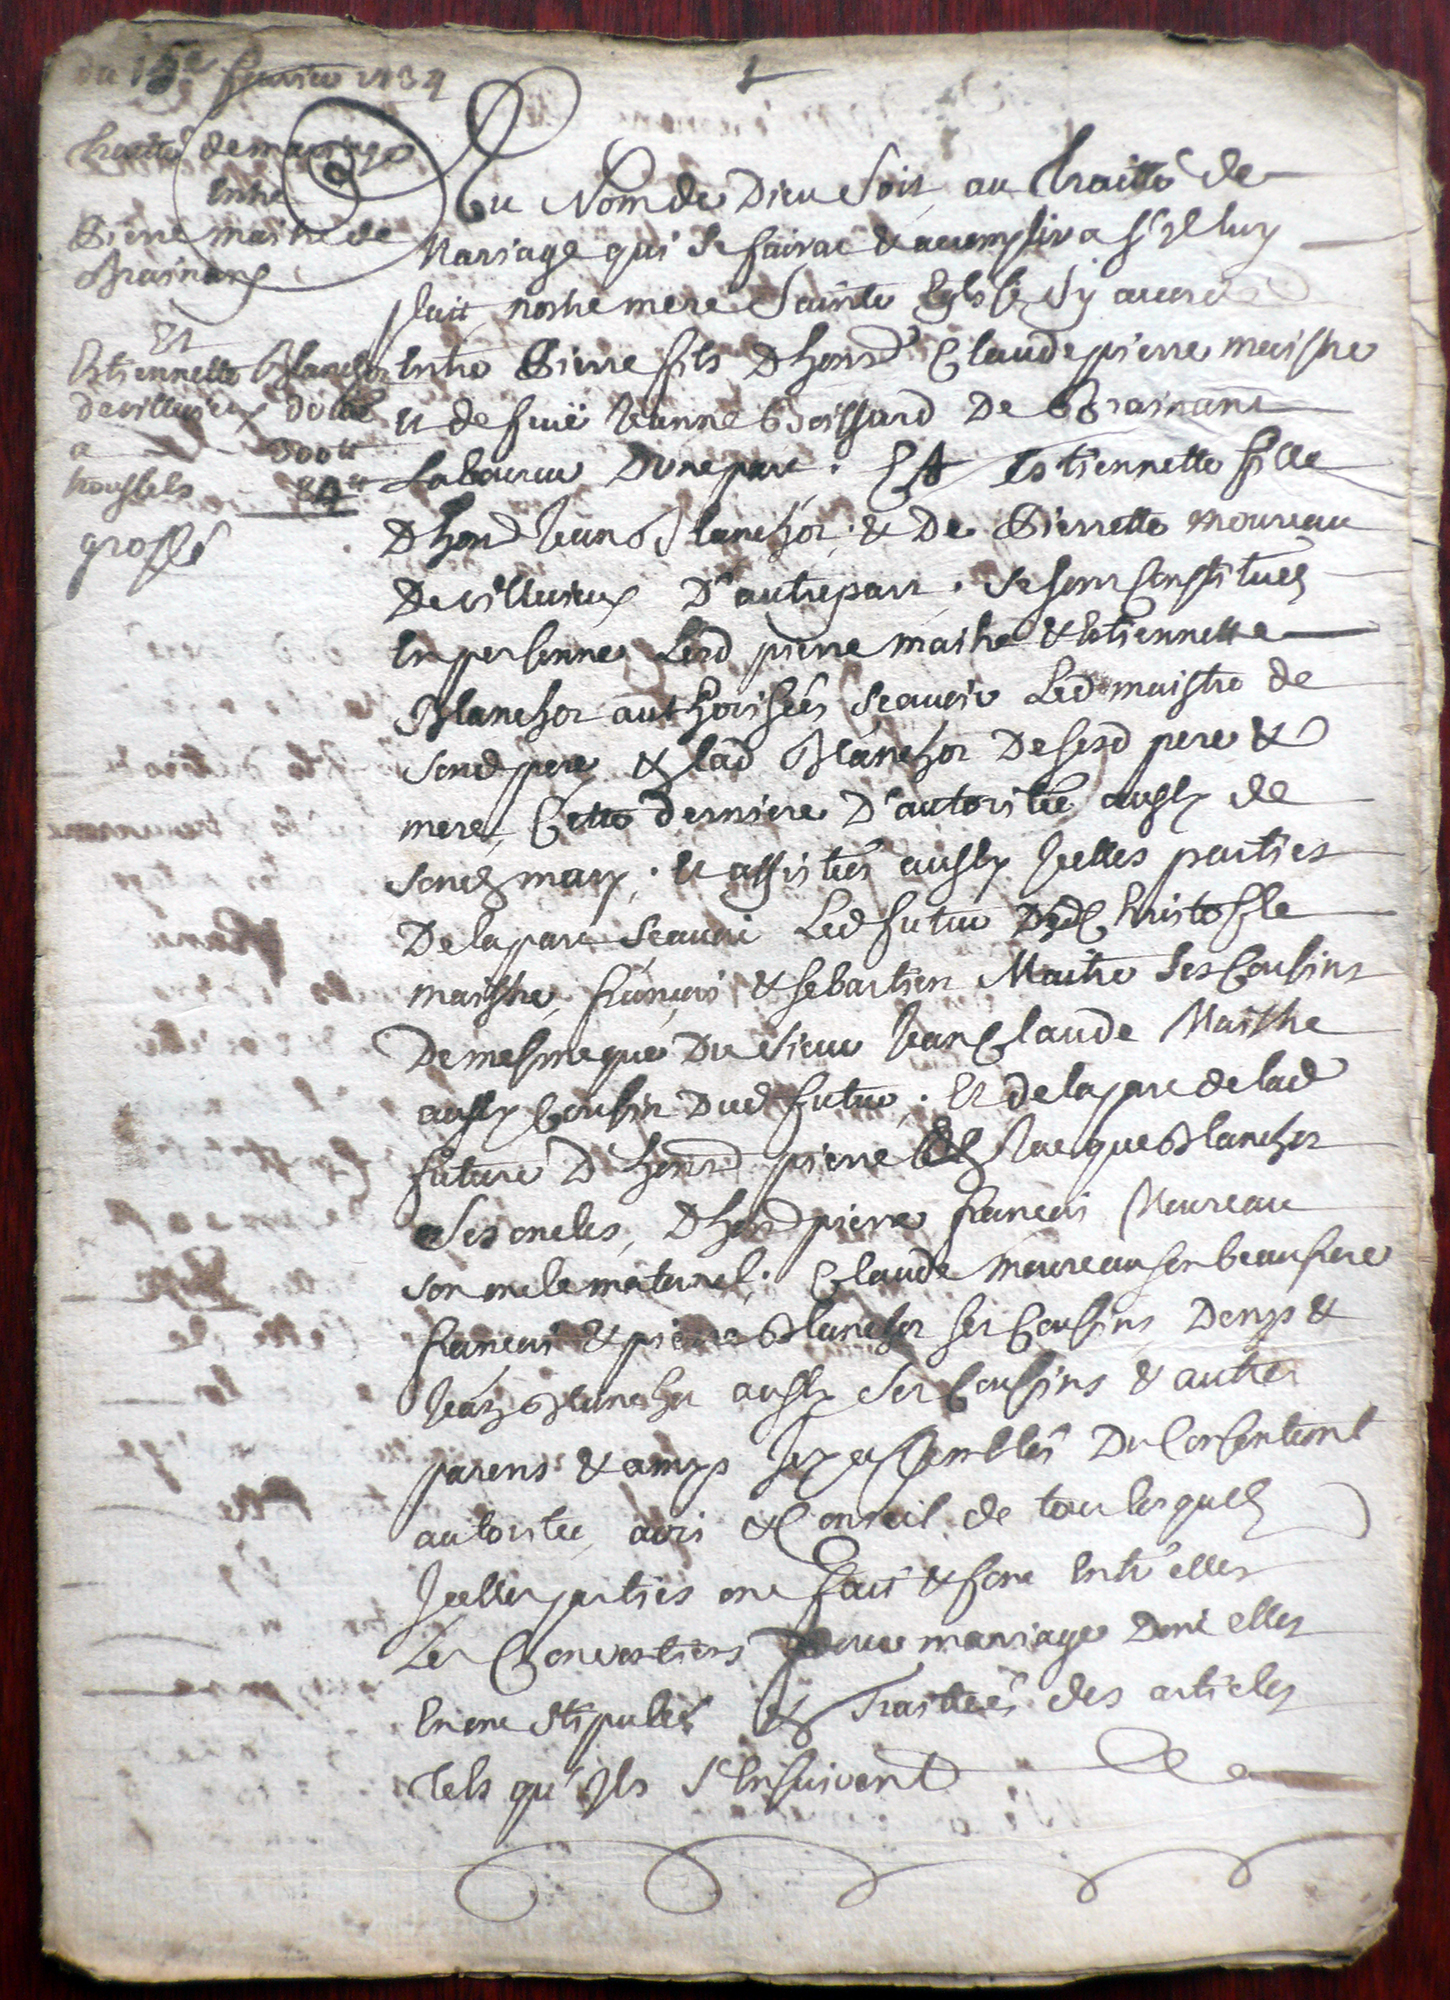 du 15e feurier 1734
1
traitté de mariage
entre
Pierre maitre de
Brainans
Et
Estiennette Blanchor
de villerieux dottée
a 300tt
troussels 84tt
grossé
Au Nom de Dieu Soit au traitté de
Mariage qui se fairat & accomplira s'il luy
plait nostre mere Sainte Eglise s'y accorde
Entre Pierre fils D'honnd Claude pierre maistre
et de fuë Jeanne Boissard De Brainans
Laboureur D'une part. Et Estiennette fille
D'hond Jean Blanchor, & De Pierrette moureau
De villerieux D'autre part. Se sont Constituéz
En personnes Lesd pierre maitre & Estiennette
Blanchor authorisées Scauoir Led maistre de
Sond pere & lad Blanchor De sesd pere &
mere, Cette derniere D'autoritée aussy de
Sond mary; et assistées aussy Jcelles parties
De la part Scauoir Led futur De Christofle
maistre, francois & sebastien Maitre ses Cousins
De mesme que Du sieur Jean Claude Maistre
aussy Cousin Dud futur. Et de la part de lad
future D'honnrd pierre & Jacque Blanchor
Ses oncles, D'hond pierre francois Moureau
son oncle maternel, Claude moureau son beaufrere
francois & pierre Blanchor ses Cousins, Denys &
Jean Blanchor aussy ses Cousins & autres
parens & amys Jcy assemblés Du Consentemt
autoritée avis & Conseil de tous lesquels
Jcelles parties ont fait & font Entr'elles
Les Conventions De mariage Dont elles
En ont stipulés & Traittées des articles
Tels qu'Jls s'Ensuivent